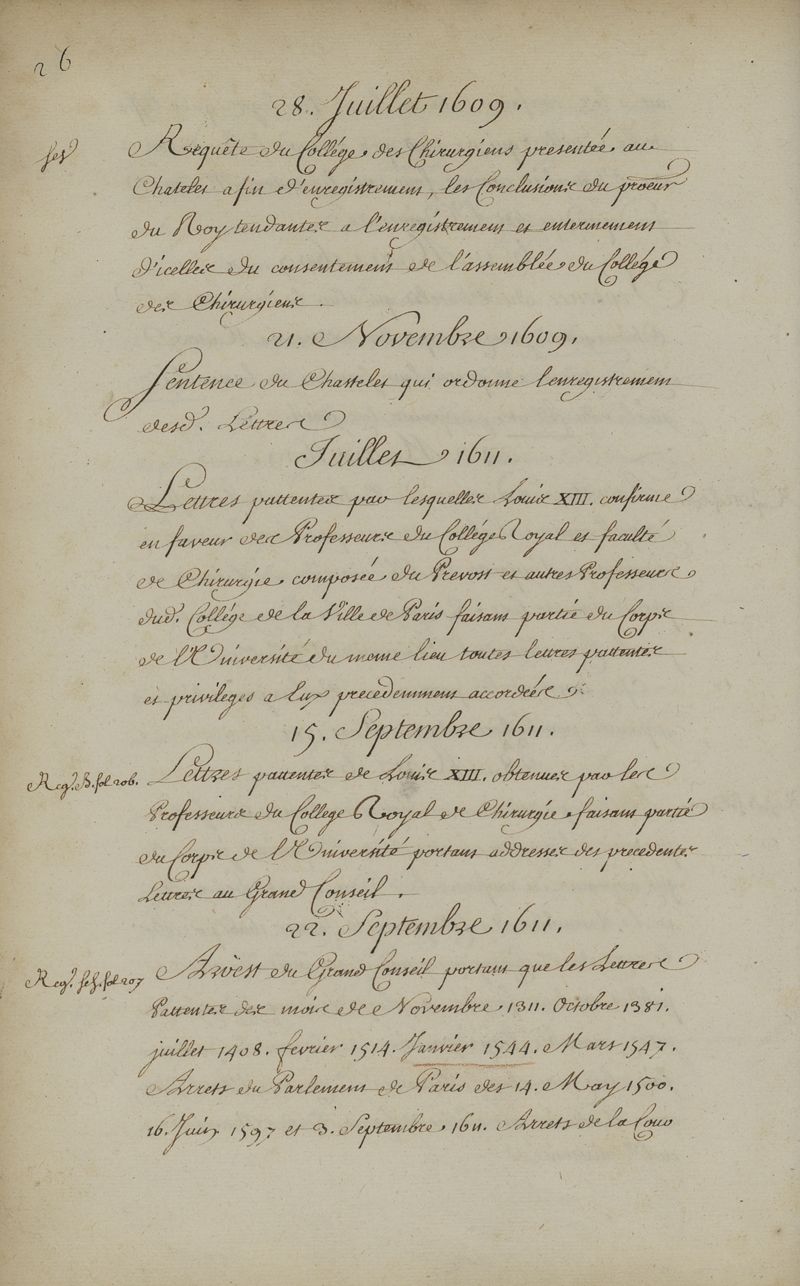 26
28. Juillet 1609.
Requête du Collége des Chirurgiens presentée au
Chatelet afin d'enregistrement, les Conclusions du procur
du Roy tendantes a l'enregistrement et enterinement
d'icelles du consentement de l'assemblée du Collége
des Chirurgiens.
21. Novembre 1609.
Sentence du Chastelet qui ordonne l'enregistrement
desd. Lettres
Juillet 1611.
Lettres pattentes par lesquelles Louis XIII. confirme
en faveur des Professeurs du Collége Royal et faculté
de Chirurgie composée du Prevost et autres Professeurs
dud. Collége de la Ville de Paris faisant partie du Corps
de l'Université du meme lieu toutes lettres pattentes
et privileges a eux precedemment accordées
15. Septembre 1611.
Reg. B. fol 206. Lettres pattentes de Louis XIII. obtenues par les
Professeurs du College Royal de Chirurgie faisant partie
du Corps de l'Université portant addresse des precedentes
Lettres au Grand Conseil.
22. Septembre 1611.
Reg. fol 207 Arrest du Grand Conseil portant que les Lettres
Pattentes des mois de Novembre 1311. Octobre 1381.
juillet 1408. fevrier 1514. Janvier 1544. Mars 1547.
Arrets du Parlement de Paris des 14. May 1500.
16. Juin 1597 et 3. Septembre 1611. Arrets de la Cour